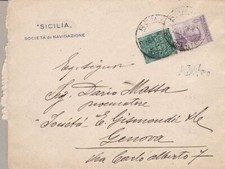 "SICILIA"
SOCIETÀ DI NAVIGAZIONE
Egr. Signor
Sig. Dario Massa
procuratore
"Società" E. Gismondi &
Genova
Via Carlo Alberto 7